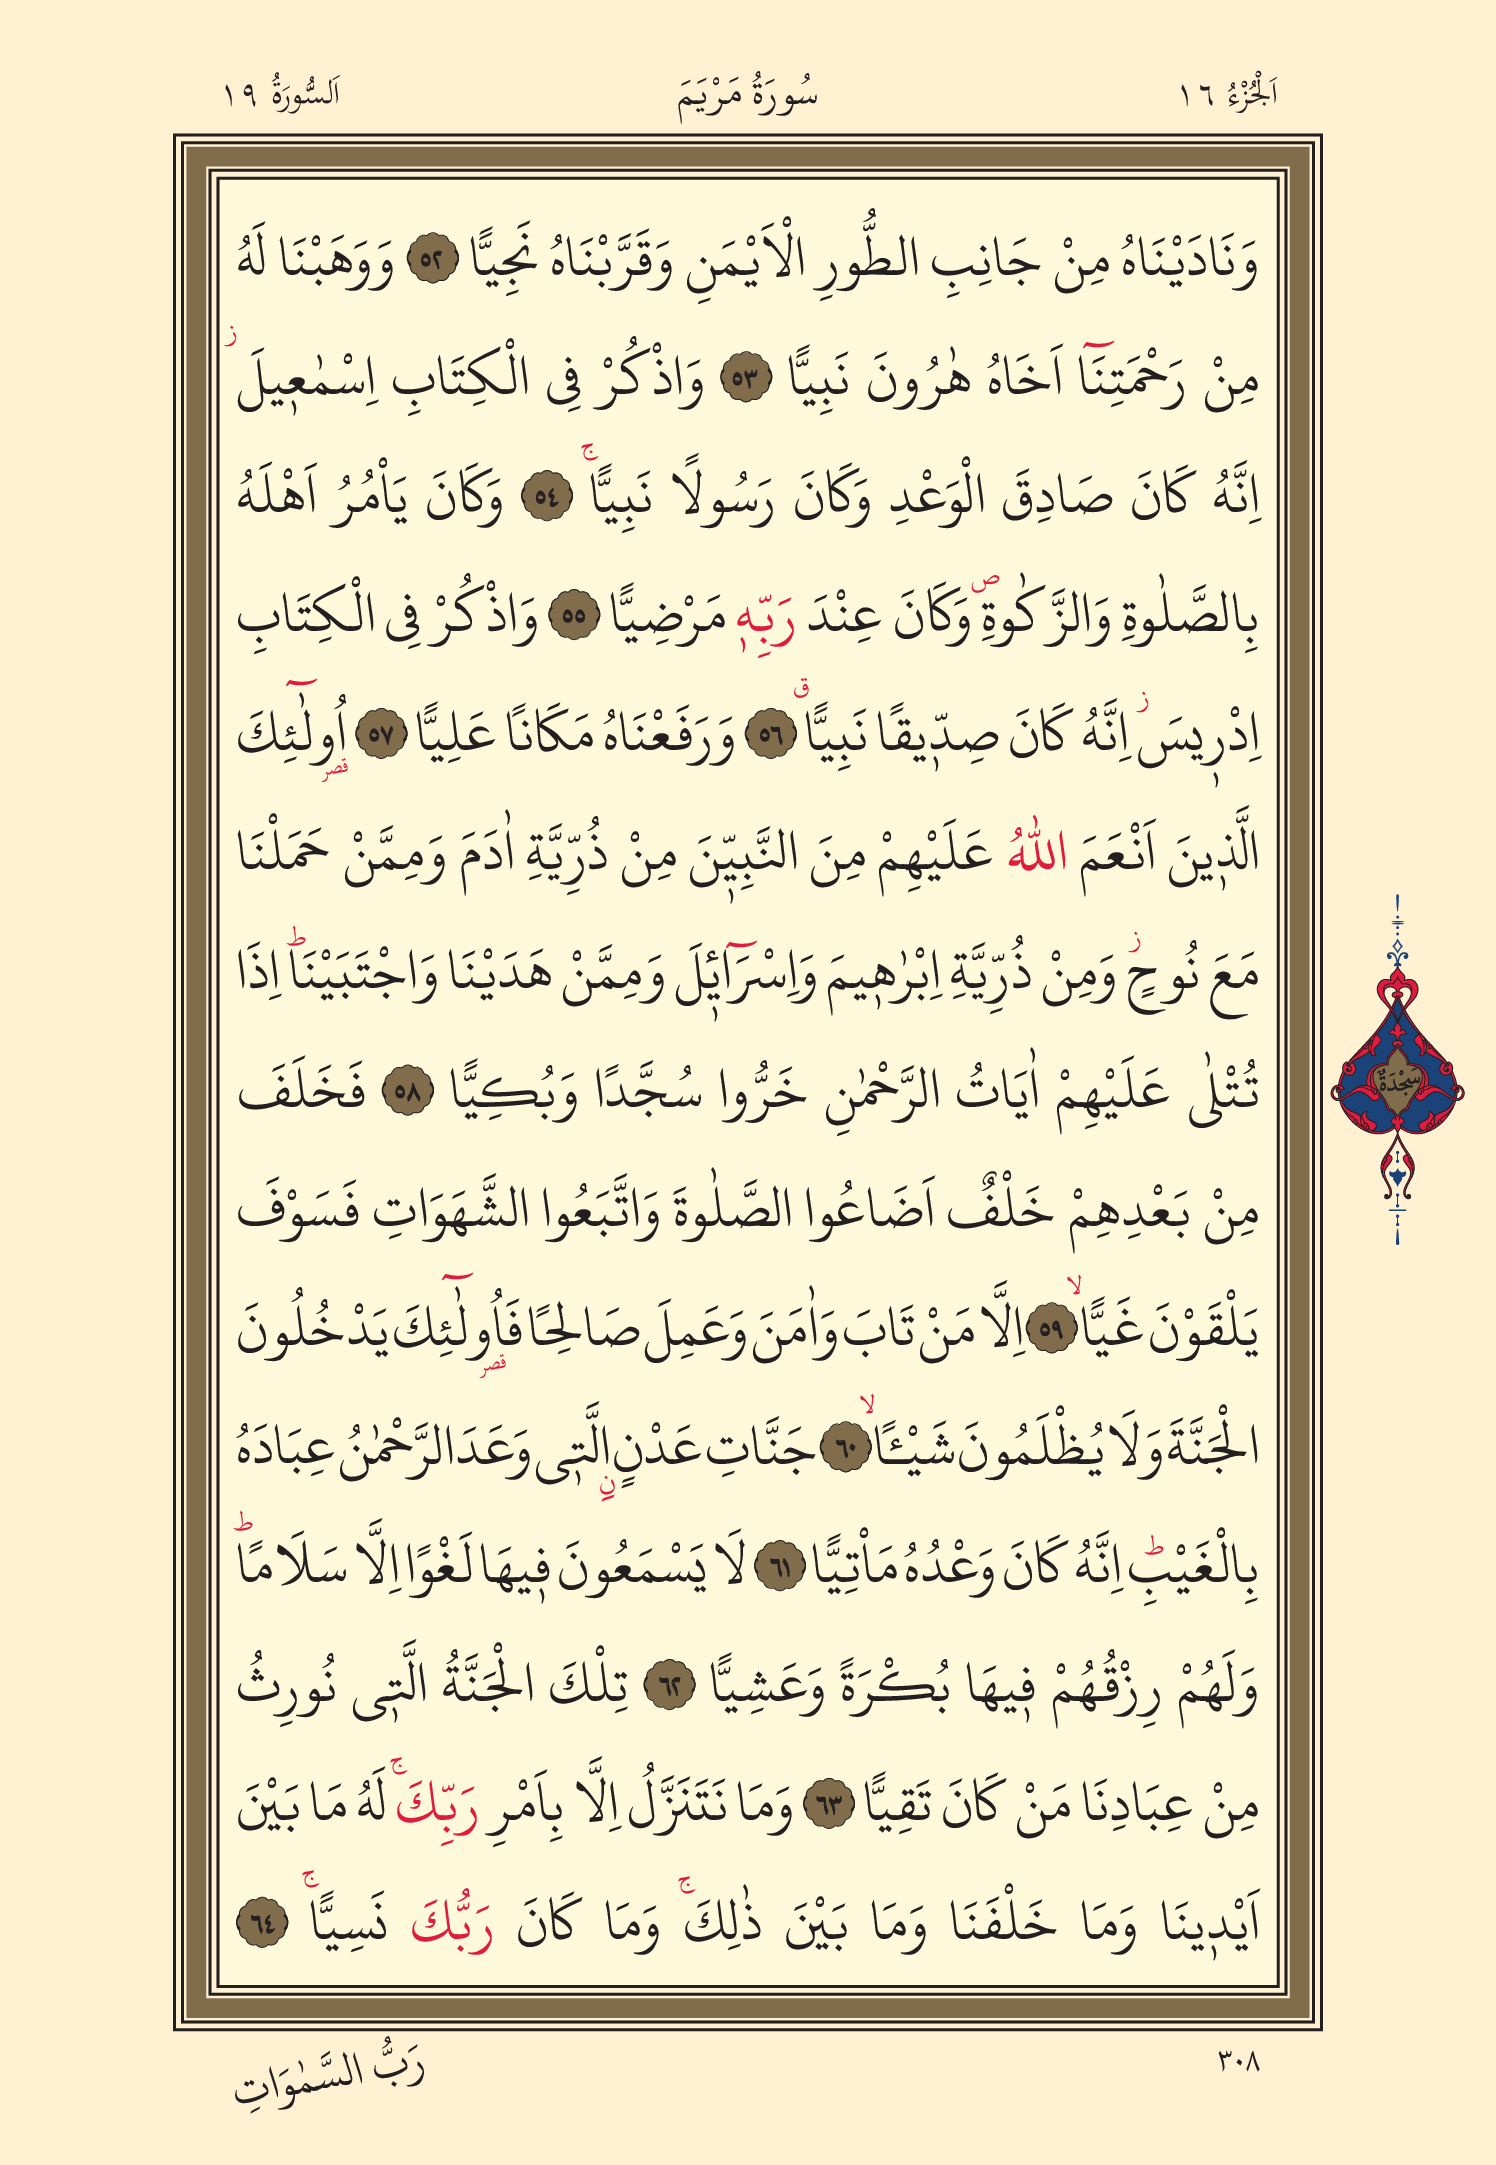 اَلْجُزْءُ ١٦
سُورَةُ مَرْيَمَ
اَلسُّورَةُ ١٩
وَنَادَيْنَاهُ مِنْ جَانِبِ الطُّورِ الْاَيْمَنِ وَقَرَّبْنَاهُ نَجِيًّا ٥٢ وَوَهَبْنَا لَهُ
مِنْ رَحْمَتِنَٓا اَخَاهُ هٰرُونَ نَبِيًّا ٥٣ وَاذْكُرْ فِى الْكِتَابِ اِسْمٰعٖيلَ ز
اِنَّهُ كَانَ صَادِقَ الْوَعْدِ وَكَانَ رَسُولًا نَبِيًّا ج ٥٤ وَكَانَ يَاْمُرُ اَهْلَهُ
بِالصَّلٰوةِ وَالزَّكٰوةِ ص وَكَانَ عِنْدَ رَبِّهٖ مَرْضِيًّا ٥٥ وَاذْكُرْ فِى الْكِتَابِ
اِدْرٖيسَ ز اِنَّهُ كَانَ صِدّٖيقًا نَبِيًّا ق ٥٦ وَرَفَعْنَاهُ مَكَانًا عَلِيًّا ٥٧ اُولٰٓئِكَ قصر
الَّذٖينَ اَنْعَمَ اللّٰهُ عَلَيْهِمْ مِنَ النَّبِيّٖنَ مِنْ ذُرِّيَّةِ اٰدَمَ وَمِمَّنْ حَمَلْنَا
مَعَ نُوحٍ ز وَمِنْ ذُرِّيَّةِ اِبْرٰهٖيمَ وَاِسْرَٓائٖلَ وَمِمَّنْ هَدَيْنَا وَاجْتَبَيْنَا ط اِذَا
تُتْلٰى عَلَيْهِمْ اٰيَاتُ الرَّحْمٰنِ خَرُّوا سُجَّدًا وَبُكِيًّا ٥٨ فَخَلَفَ
سَجْدَةٌ
مِنْ بَعْدِهِمْ خَلْفٌ اَضَاعُوا الصَّلٰوةَ وَاتَّبَعُوا الشَّهَوَاتِ فَسَوْفَ
يَلْقَوْنَ غَيًّا لا ٥٩ اِلَّا مَنْ تَابَ وَاٰمَنَ وَعَمِلَ صَالِحًا فَاُولٰٓئِكَ قصر يَدْخُلُونَ
الْجَنَّةَ وَلَا يُظْلَمُونَ شَيْـًٔا لا ٦٠ جَنَّاتِ عَدْنٍ نِ الَّتٖى وَعَدَ الرَّحْمٰنُ عِبَادَهُ
بِالْغَيْبِ ط اِنَّهُ كَانَ وَعْدُهُ مَاْتِيًّا ٦١ لَا يَسْمَعُونَ فٖيهَا لَغْوًا اِلَّا سَلَامًا ط
وَلَهُمْ رِزْقُهُمْ فٖيهَا بُكْرَةً وَعَشِيًّا ٦٢ تِلْكَ الْجَنَّةُ الَّتٖى نُورِثُ
مِنْ عِبَادِنَا مَنْ كَانَ تَقِيًّا ٦٣ وَمَا نَتَنَزَّلُ اِلَّا بِاَمْرِ رَبِّكَ ج لَهُ مَا بَيْنَ
اَيْدٖينَا وَمَا خَلْفَنَا وَمَا بَيْنَ ذٰلِكَ ج وَمَا كَانَ رَبُّكَ نَسِيًّا ج ٦٤
٣٠٨
رَبُّ السَّمٰوَاتِ